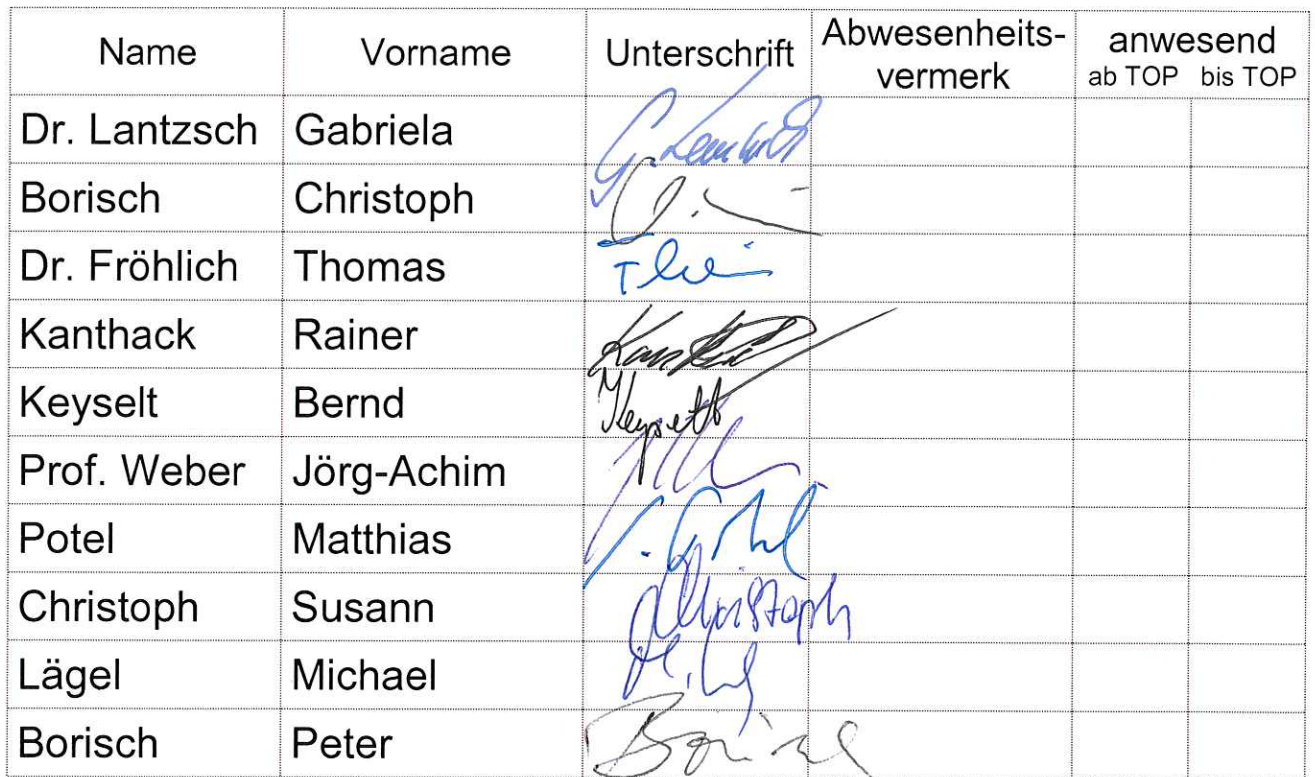 Name Vorname Unterschrift Abwesenheits-vermerk anwesend
ab TOP bis TOP
Dr. Lantzsch Gabriela
Borisch Christoph
Dr. Fröhlich Thomas
Kanthack Rainer
Keyselt Bernd Keyselt
Prof. Weber Jörg-Achim
Potel Matthias
Christoph Susann Christoph
Lägel Michael
Borisch Peter